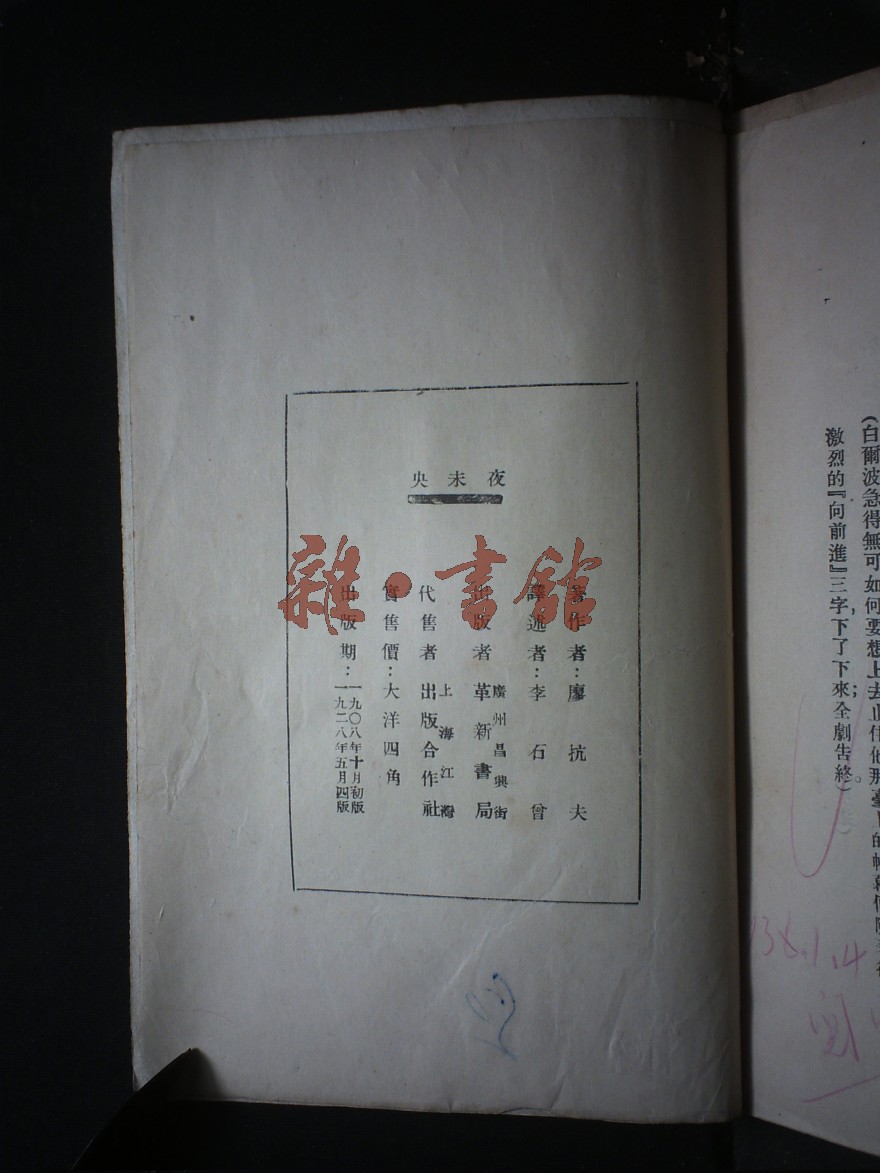 (白爾波急得無可如何要想上去止住他那
激烈的『向前進』三字,下了下來;全劇告終。)
138.1.14
夜未央
著作者:廖抗夫
譯述者:李石曾
廣州昌興街
出版者 革新書局
上海江灣
代售者 出版合作社
實售價:大洋四角
出版期:一九〇八年十月初版
一九二八年五月四版
雜·書館